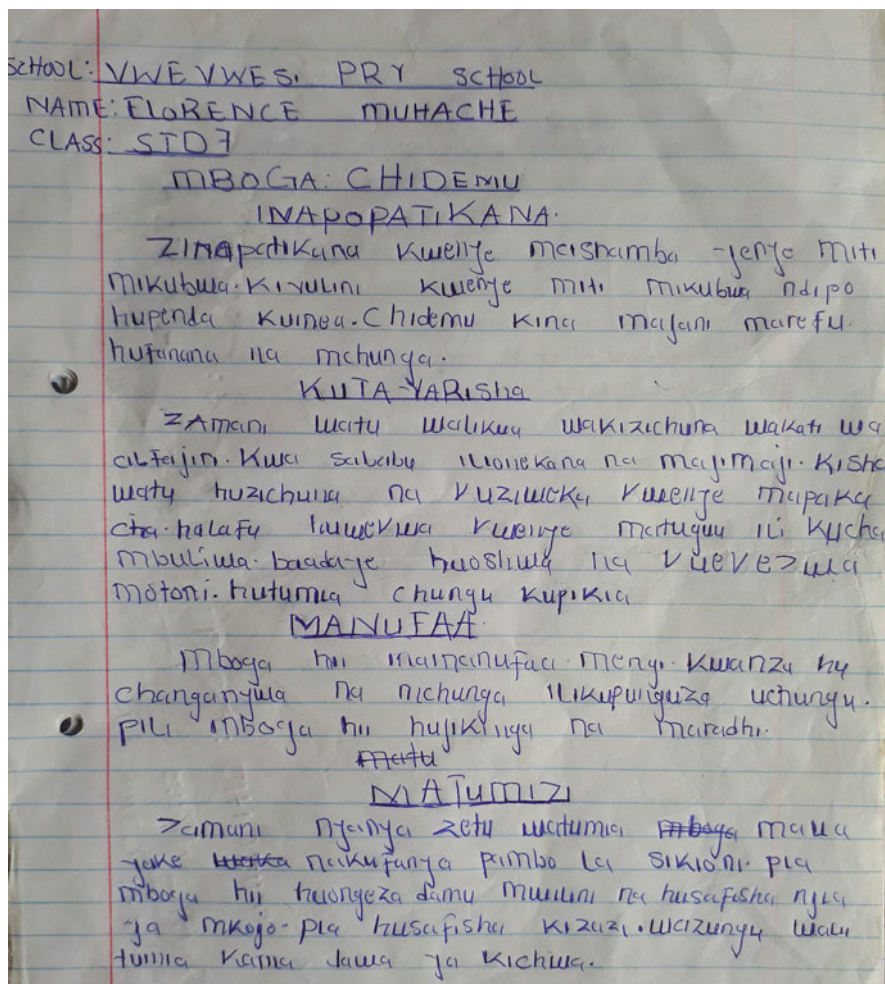 SCHOOL: VWEVWESI PRY SCHOOL
NAME: FLORENCE MUHACHE
CLASS: STD7
MBOGA: CHIDEMU
INAPOPATIKANA.
ZINApatikana kwenye maishamba yenye miti
mikubwa. Kivulini kwenye miti mikubwa ndipo
hupenda kuinea. Chidemu kina majani marefu.
hufanana na mchunga.
KUTAYARISha
ZAmani watu walikuw wakizichuna wakati wa
alfajiri. Kwa sababu ilionekana na majimaji. Kisha
watu huzichuna na kuziweka kwenye mapaka
cha. halafu kwenye matuguu ili kucha
mbuliwa. baadaye huoshwa na
motoni. hutumia chungu kupikia
MANUFAA.
Mboga hii mainanufaa mengi. Kwanza hu
changanyiwa na mchunga ilikupunguza uchungu.
pili mboga hii hujikinga na maradhi.
matu
MATUMIZI
Zamani nyanya zetu watumia mboga maua
yake naikufanya pambo la sikioni. pia
mboga hii huongeza damu mwilini na husafisha njia
ya mkojo. pia husafisha kizazi. wazungu wali
tumia kama dawa ya kichwa.